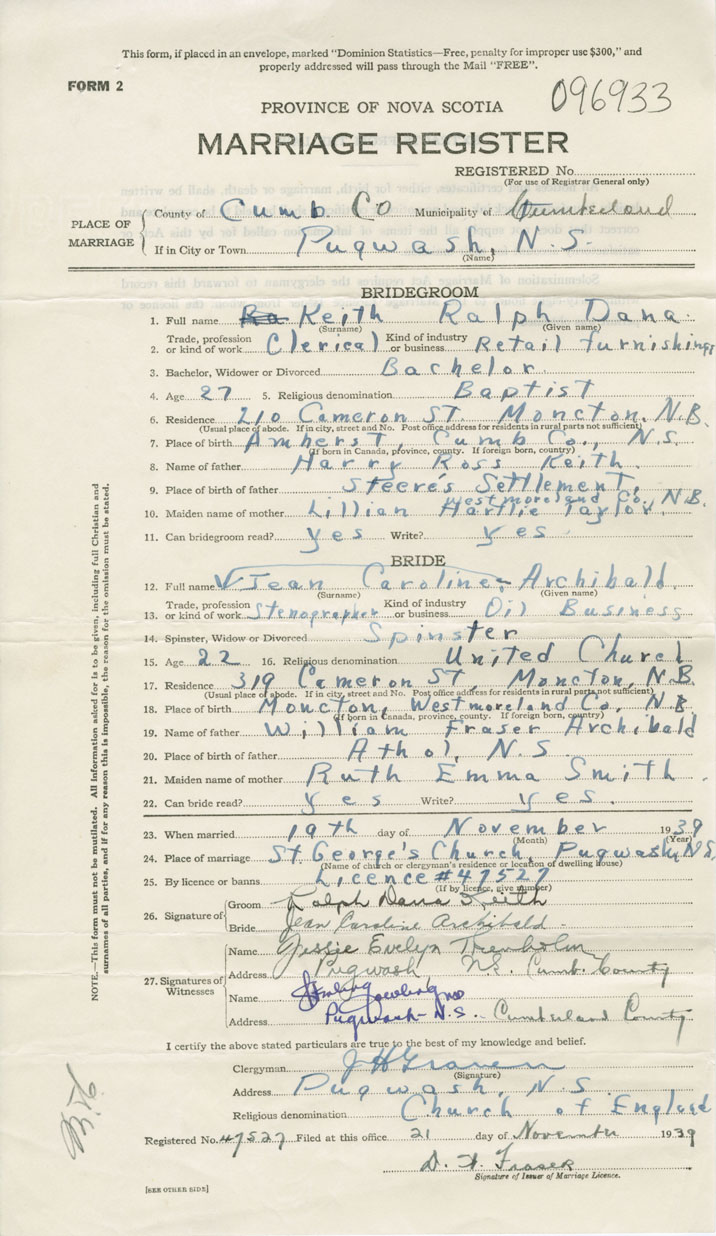 This form, if placed in an envelope, marked "Dominion Statistics—Free, penalty for improper use $300," and
properly addressed will pass through the Mail "FREE".
FORM 2
096933
PROVINCE OF NOVA SCOTIA
MARRIAGE REGISTER
REGISTERED No.
(For use of Registrar General only)
PLACE OF MARRIAGE
County of Cumb. Co Municipality of Cumberland
If in City or Town Pugwash, N.S.
(Name)
BRIDEGROOM
1. Full name Keith Ralph Dana.
(Surname) (Given name)
2. Trade, profession or kind of work Clerical Kind of industry or business Retail furnishings
3. Bachelor, Widower or Divorced Bachelor
4. Age 27 5. Religious denomination Baptist
6. Residence 210 Cameron St. Moncton, N.B.
(Usual place of abode. If in city, street and No. Post office address for residents in rural parts not sufficient)
7. Place of birth Amherst, Cumb Co., N.S.
(If born in Canada, province, county. If foreign born, country)
8. Name of father Harry Ross Keith.
9. Place of birth of father Steere's Settlement,
Westmoreland Co., N.B.
10. Maiden name of mother Lillian Hartlie Taylor.
11. Can bridegroom read? yes Write? yes
BRIDE
12. Full name Jean Caroline, Archibald.
(Surname) (Given name)
13. Trade, profession or kind of work Stenographer Kind of industry or business Oil Business
14. Spinster, Widow or Divorced Spinster
15. Age 22 16. Religious denomination United Church
17. Residence 319 Cameron St, Moncton, N.B.
(Usual place of abode. If in city, street and No. Post office address for residents in rural parts not sufficient)
18. Place of birth Moncton, Westmoreland Co., N.B
(If born in Canada, province, county. If foreign born, country)
19. Name of father William Fraser Archibald
20. Place of birth of father Athol, N.S.
21. Maiden name of mother Ruth Emma Smith.
22. Can bride read? yes Write? yes.
23. When married 19th day of November 1939
(Month) (Year)
24. Place of marriage St. George's Church, Pugwash, N.S.
(Name of church or clergyman's residence or location of dwelling house)
25. By licence or banns Licence #47527
(If by licence, give number)
26. Signature of
Groom Ralph Dana Keith
Bride Jean Caroline Archibald.
27. Signatures of Witnesses
Name Jessie Evelyn Trenholm
Address Pugwash, N.S. Cumb. County
Name
Address Pugwash - N.S. Cumberland County
I certify the above stated particulars are true to the best of my knowledge and belief.
Clergyman J H Graven
(Signature)
Address Pugwash, N.S.
Religious denomination Church of England
Registered No. 47527 Filed at this office 21 day of November 1939
D. H. Fraser
Signature of Issuer of Marriage Licence.
[SEE OTHER SIDE]
NOTE.—This form must not be mutilated. All information asked for is to be given, including full Christian and
surnames of all parties, and if for any reason this is impossible, the reason for the omission must be stated.